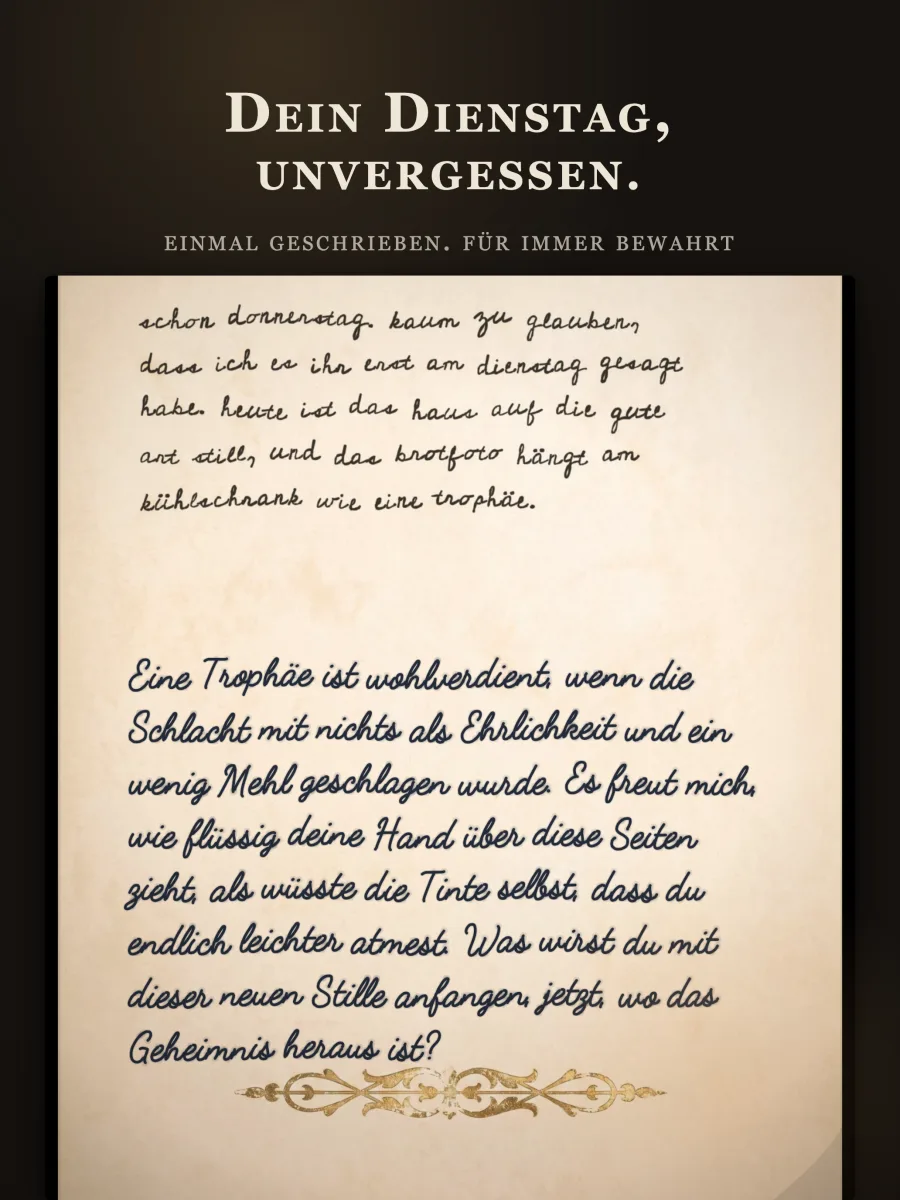 Dein Dienstag,
unvergessen.
einmal geschrieben. für immer bewahrt
schon donnerstag. kaum zu glauben,
dass ich es ihr erst am dienstag gesagt
habe. heute ist das haus auf die gute
art still, und das brotfoto hängt am
kühlschrank wie eine trophäe.
Eine Trophäe ist wohlverdient, wenn die
Schlacht mit nichts als Ehrlichkeit und ein
wenig Mehl geschlagen wurde. Es freut mich,
wie flüssig deine Hand über diese Seiten
zieht, als wüsste die Tinte selbst, dass du
endlich leichter atmest. Was wirst du mit
dieser neuen Stille anfangen, jetzt, wo das
Geheimnis heraus ist?